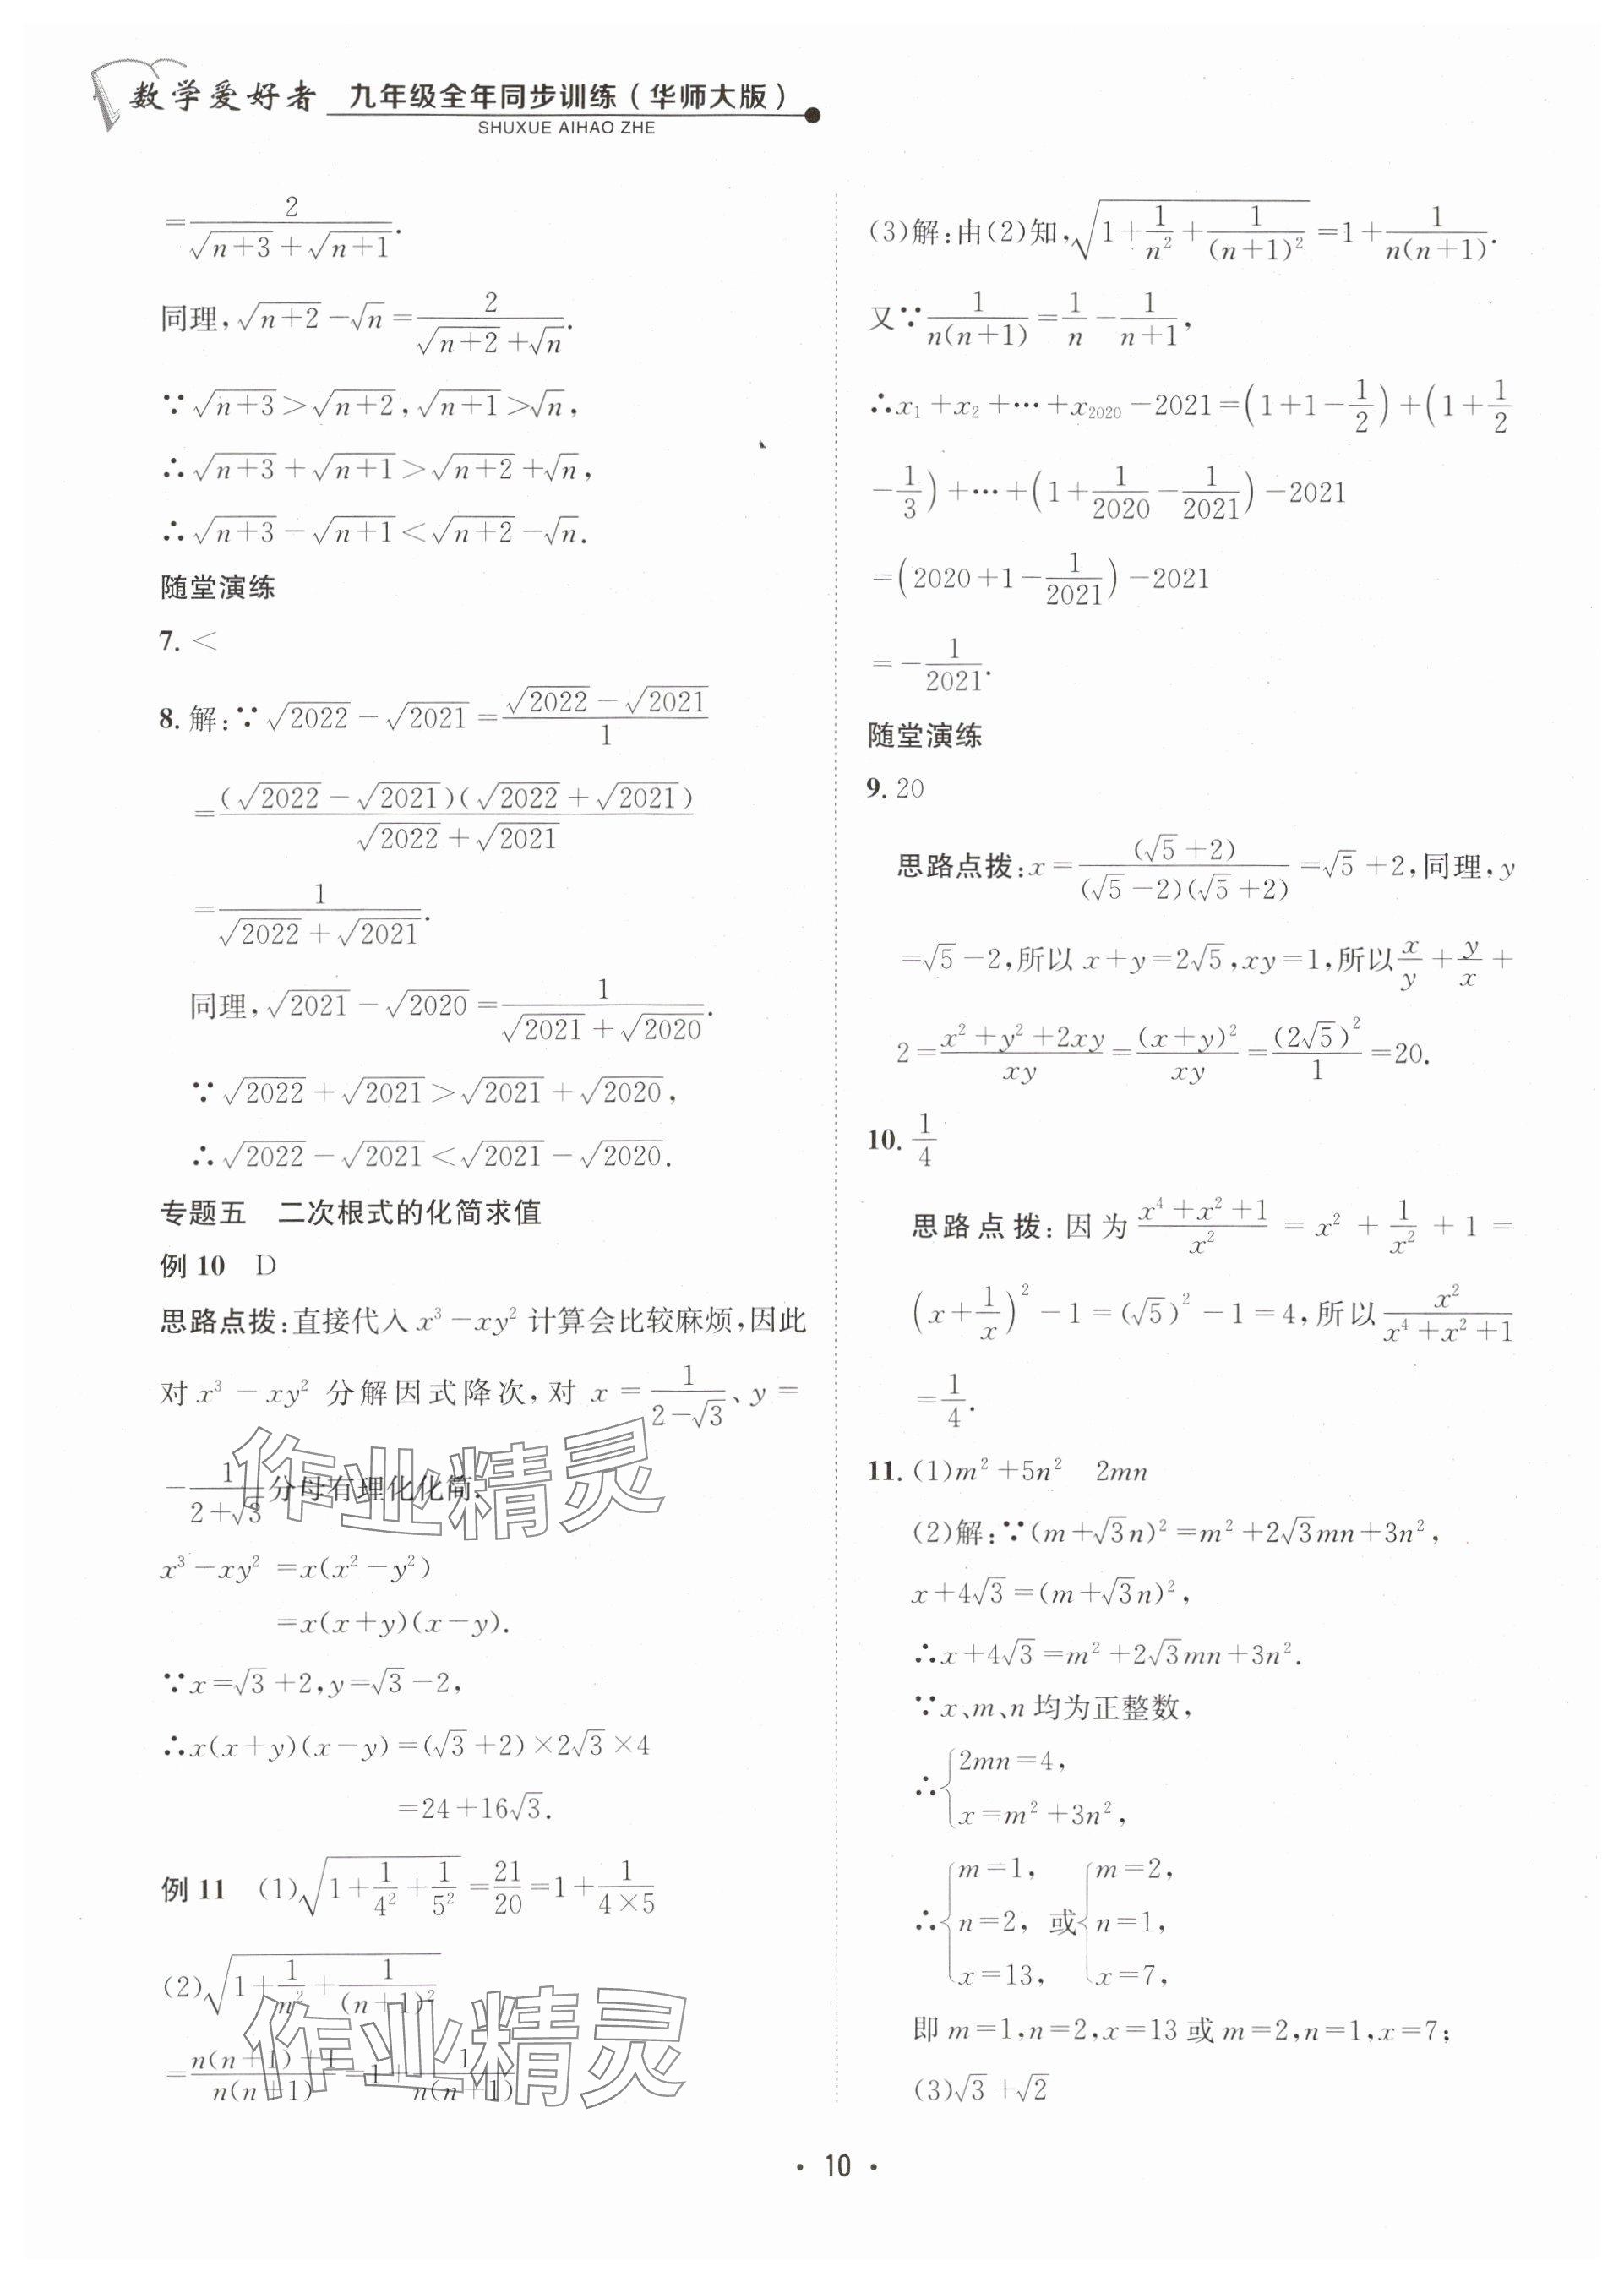 数学爱好者 九年级全年同步训练(华师大版)
SHUXUE AIHAO ZHE
=2/(√(n+3)+√(n+1)).
同理,√(n+2)-√n=2/(√(n+2)+√n).
∵√(n+3)>√(n+2),√(n+1)>√n,
∴√(n+3)+√(n+1)>√(n+2)+√n,
∴√(n+3)-√(n+1)<√(n+2)-√n.
随堂演练
7. <
8. 解:∵√2022-√2021=(√2022-√2021)/1
=(√2022-√2021)(√2022+√2021)/(√2022+√2021)
=1/(√2022+√2021).
同理,√2021-√2020=1/(√2021+√2020).
∵√2022+√2021>√2021+√2020,
∴√2022-√2021<√2021-√2020.
专题五 二次根式的化简求值
例10 D
思路点拨:直接代入 x³-xy² 计算会比较麻烦,因此
对 x³-xy² 分解因式降次,对 x=1/(2-√3)、y=
-1/(2+√3)分母有理化化简.
x³-xy²=x(x²-y²)
=x(x+y)(x-y).
∵x=√3+2,y=√3-2,
∴x(x+y)(x-y)=(√3+2)×2√3×4
=24+16√3.
例11 (1)√(1+1/4²+1/5²)=21/20=1+1/(4×5)
(2)√(1+1/n²+1/(n+1)²)
=(n(n+1)+1)/(n(n+1))=1+1/(n(n+1))
(3)解:由(2)知,√(1+1/n²+1/(n+1)²)=1+1/(n(n+1)).
又∵1/(n(n+1))=1/n-1/(n+1),
∴x₁+x₂+…+x₂₀₂₀-2021=(1+1-1/2)+(1+1/2
-1/3)+…+(1+1/2020-1/2021)-2021
=(2020+1-1/2021)-2021
=-1/2021.
随堂演练
9. 20
思路点拨:x=(√5+2)/((√5-2)(√5+2))=√5+2,同理,y
=√5-2,所以 x+y=2√5,xy=1,所以x/y+y/x+
2=(x²+y²+2xy)/xy=(x+y)²/xy=(2√5)²/1=20.
10. 1/4
思路点拨:因为(x⁴+x²+1)/x²=x²+1/x²+1=
(x+1/x)²-1=(√5)²-1=4,所以x²/(x⁴+x²+1)
=1/4.
11. (1)m²+5n² 2mn
(2)解:∵(m+√3n)²=m²+2√3mn+3n²,
x+4√3=(m+√3n)²,
∴x+4√3=m²+2√3mn+3n².
∵x、m、n 均为正整数,
∴{2mn=4,
x=m²+3n²,
{m=1, {m=2,
∴ n=2, 或 n=1,
x=13, x=7,
即 m=1,n=2,x=13 或 m=2,n=1,x=7;
(3)√3+√2
作业精灵
作业精灵
• 10 •